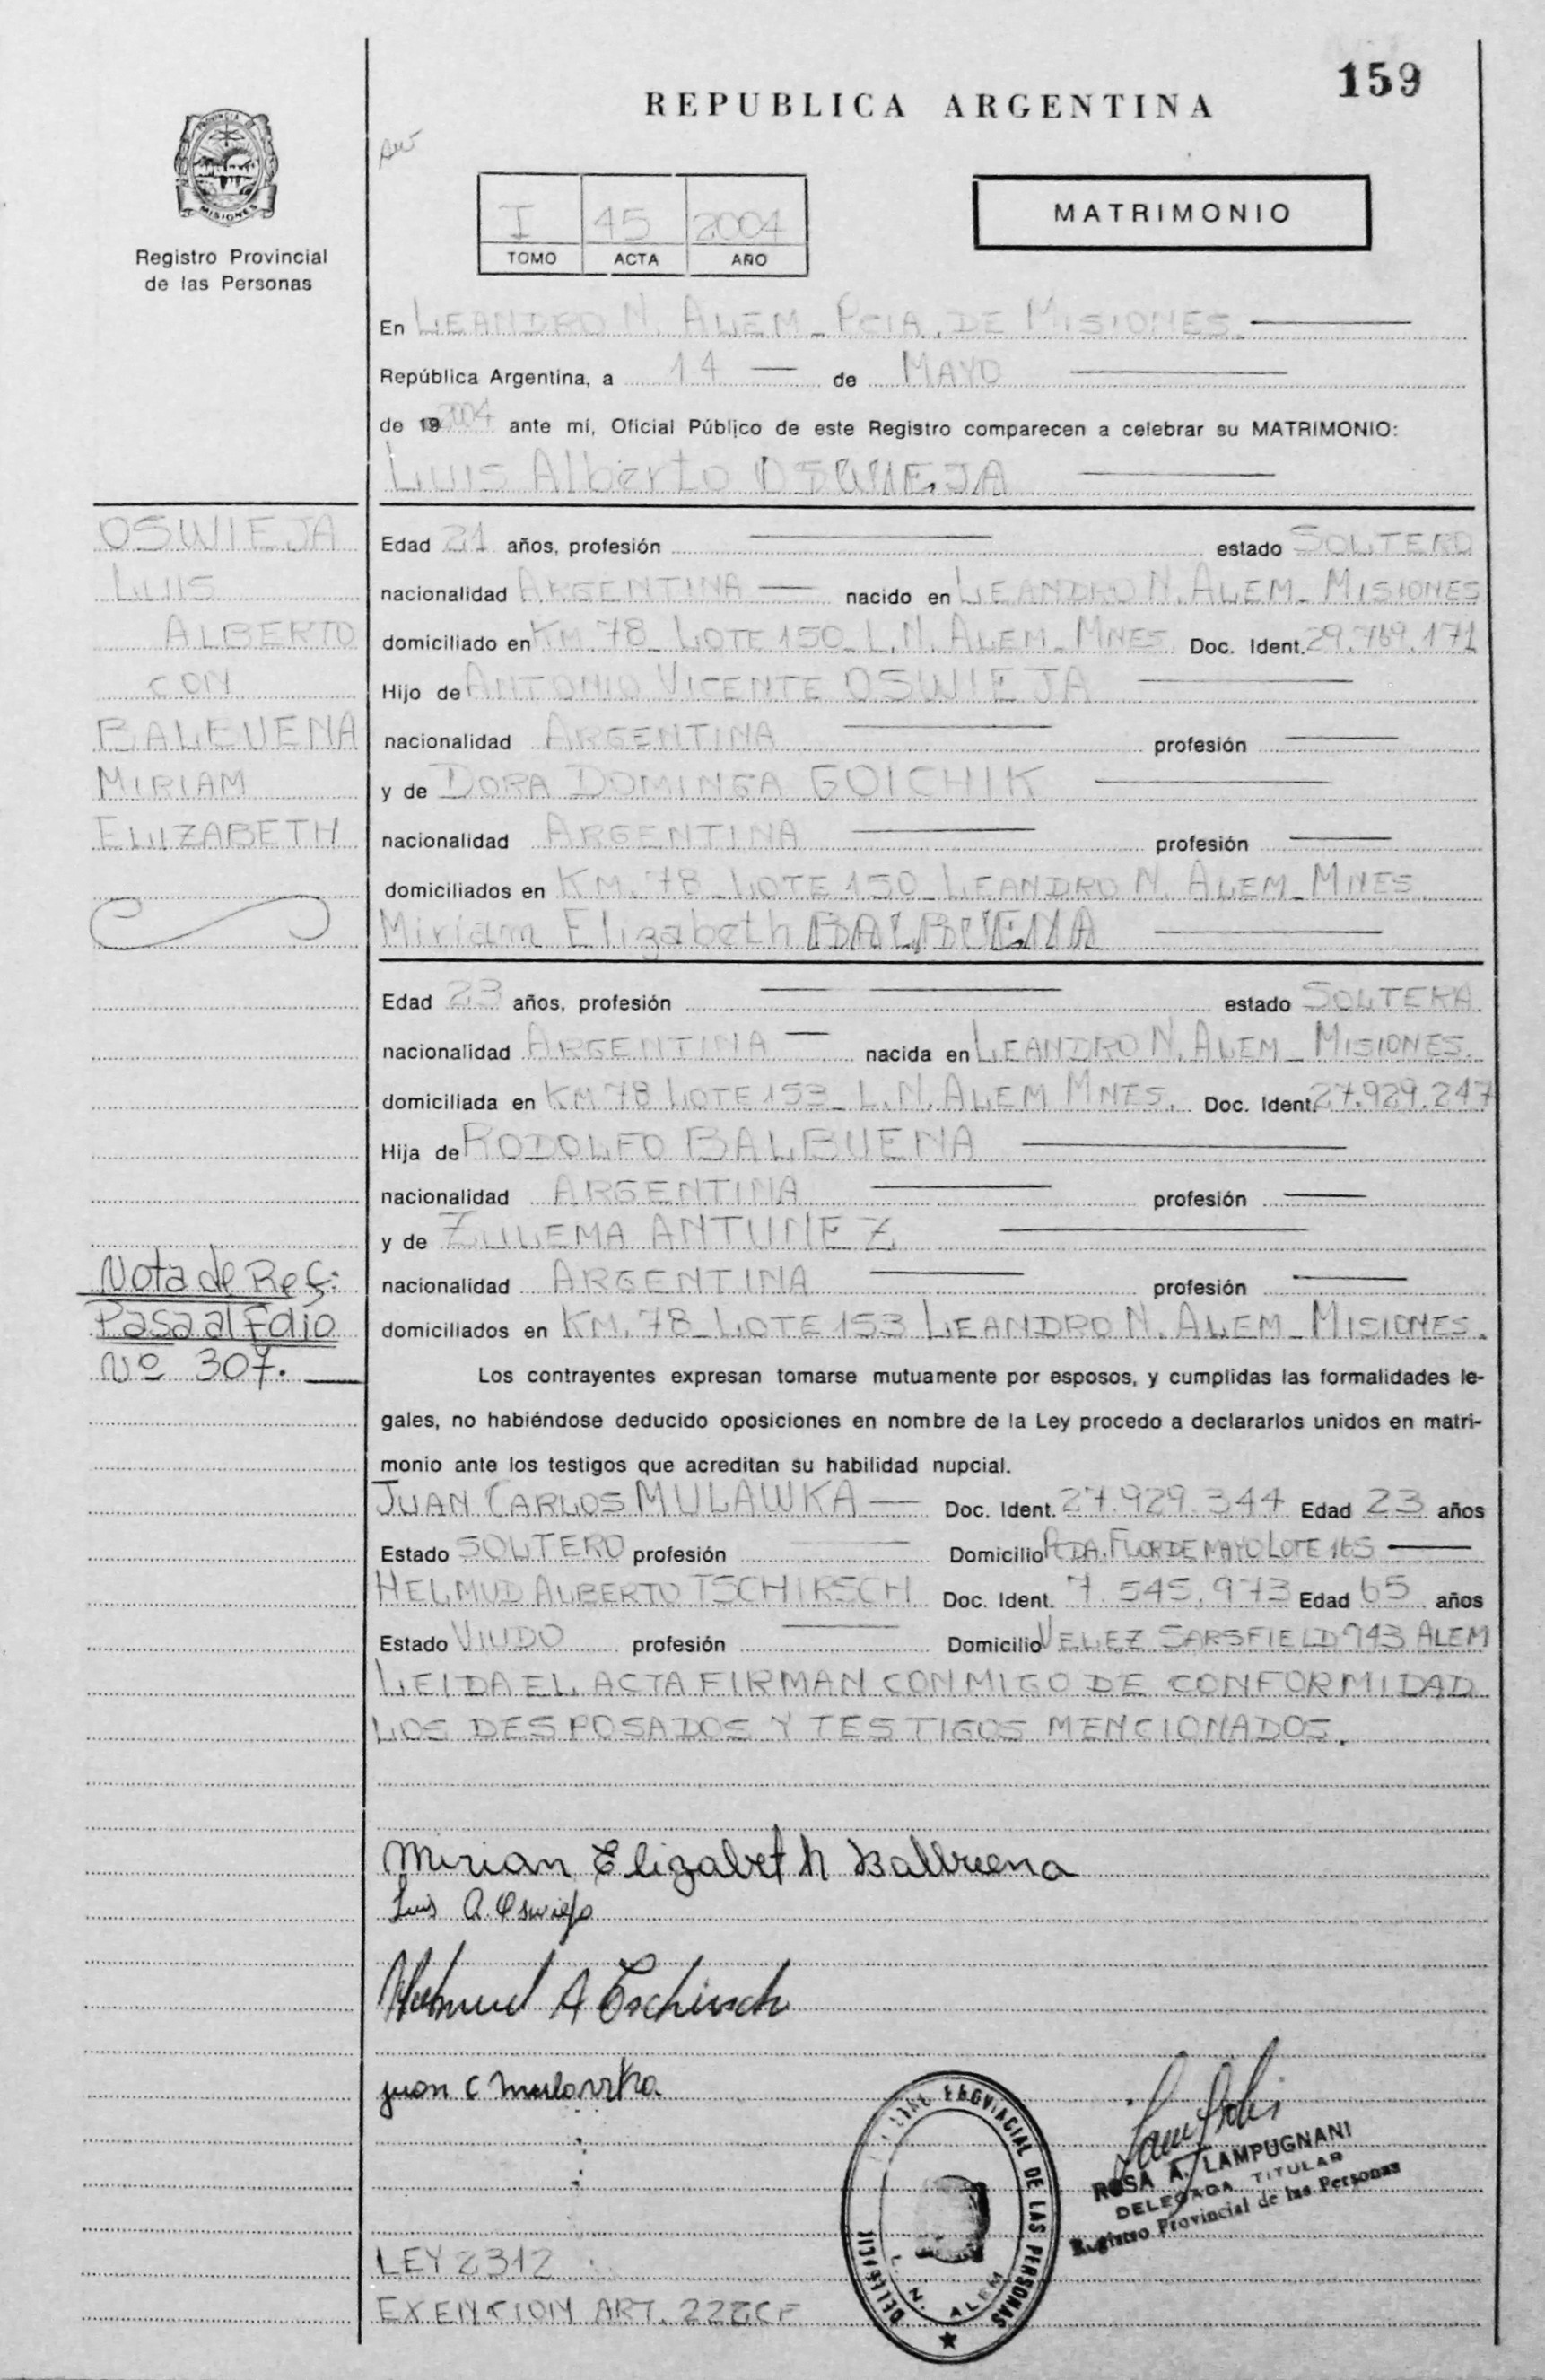 159
REPUBLICA ARGENTINA
PROVINCIA DE MISIONES
Registro Provincial
de las Personas
I 45 2004
TOMO ACTA AÑO
MATRIMONIO
En LEANDRO N. ALEM - PCIA. DE MISIONES.
República Argentina, a 14 de MAYO
de 19 2004 ante mí, Oficial Público de este Registro comparecen a celebrar su MATRIMONIO:
Luis Alberto OSWIEJA
OSWIEJA
LUIS
ALBERTO
CON
BALBUENA
MIRIAM
ELIZABETH
Edad 21 años, profesión estado SOLTERO
nacionalidad ARGENTINA nacido en LEANDRO N. ALEM - MISIONES
domiciliado en KM. 78 - LOTE 150 - L.N. ALEM - MNES. Doc. Ident. 29.769.171
Hijo de ANTONIO VICENTE OSWIEJA
nacionalidad ARGENTINA profesión
y de DORA DOMINGA GOICHIK
nacionalidad ARGENTINA profesión
domiciliados en KM. 78 - LOTE 150 - LEANDRO N. ALEM - MNES.
Miriam Elizabeth BALBUENA
Edad 23 años, profesión estado SOLTERA.
nacionalidad ARGENTINA nacida en LEANDRO N. ALEM - MISIONES.
domiciliada en KM 78 LOTE 153 - L.N. ALEM MNES. Doc. Ident. 27.929.247
Hija de RODOLFO BALBUENA
nacionalidad ARGENTINA profesión
y de ZULEMA ANTUNEZ
nacionalidad ARGENTINA profesión
domiciliados en KM. 78 - LOTE 153 LEANDRO N. ALEM - MISIONES.
Nota de Ref:
Pasa al Folio
Nº 307.
Los contrayentes expresan tomarse mutuamente por esposos, y cumplidas las formalidades le-
gales, no habiéndose deducido oposiciones en nombre de la Ley procedo a declararlos unidos en matri-
monio ante los testigos que acreditan su habilidad nupcial.
JUAN CARLOS MULAWKA Doc. Ident. 27.929.344 Edad 23 años
Estado SOLTERO profesión Domicilio PDA. FLOR DE MAYO LOTE 165
HELMUD ALBERTO TSCHIRSCH Doc. Ident. 7.545.973 Edad 65 años
Estado VIUDO profesión Domicilio VELEZ SARSFIELD 943 ALEM
LEIDA EL ACTA FIRMAN CONMIGO DE CONFORMIDAD
LOS DESPOSADOS Y TESTIGOS MENCIONADOS.
Mirian Elizabeth Balbuena
Luis A. Oswieja
Helmud A Tschirsch
juan c mulawka
PROVINCIAL DE LAS PERSONAS
L. N. ALEM
ROSA A. LAMPUGNANI
DELEGADA TITULAR
Registro Provincial de las Personas
LEY 2312
EXENCION ART.